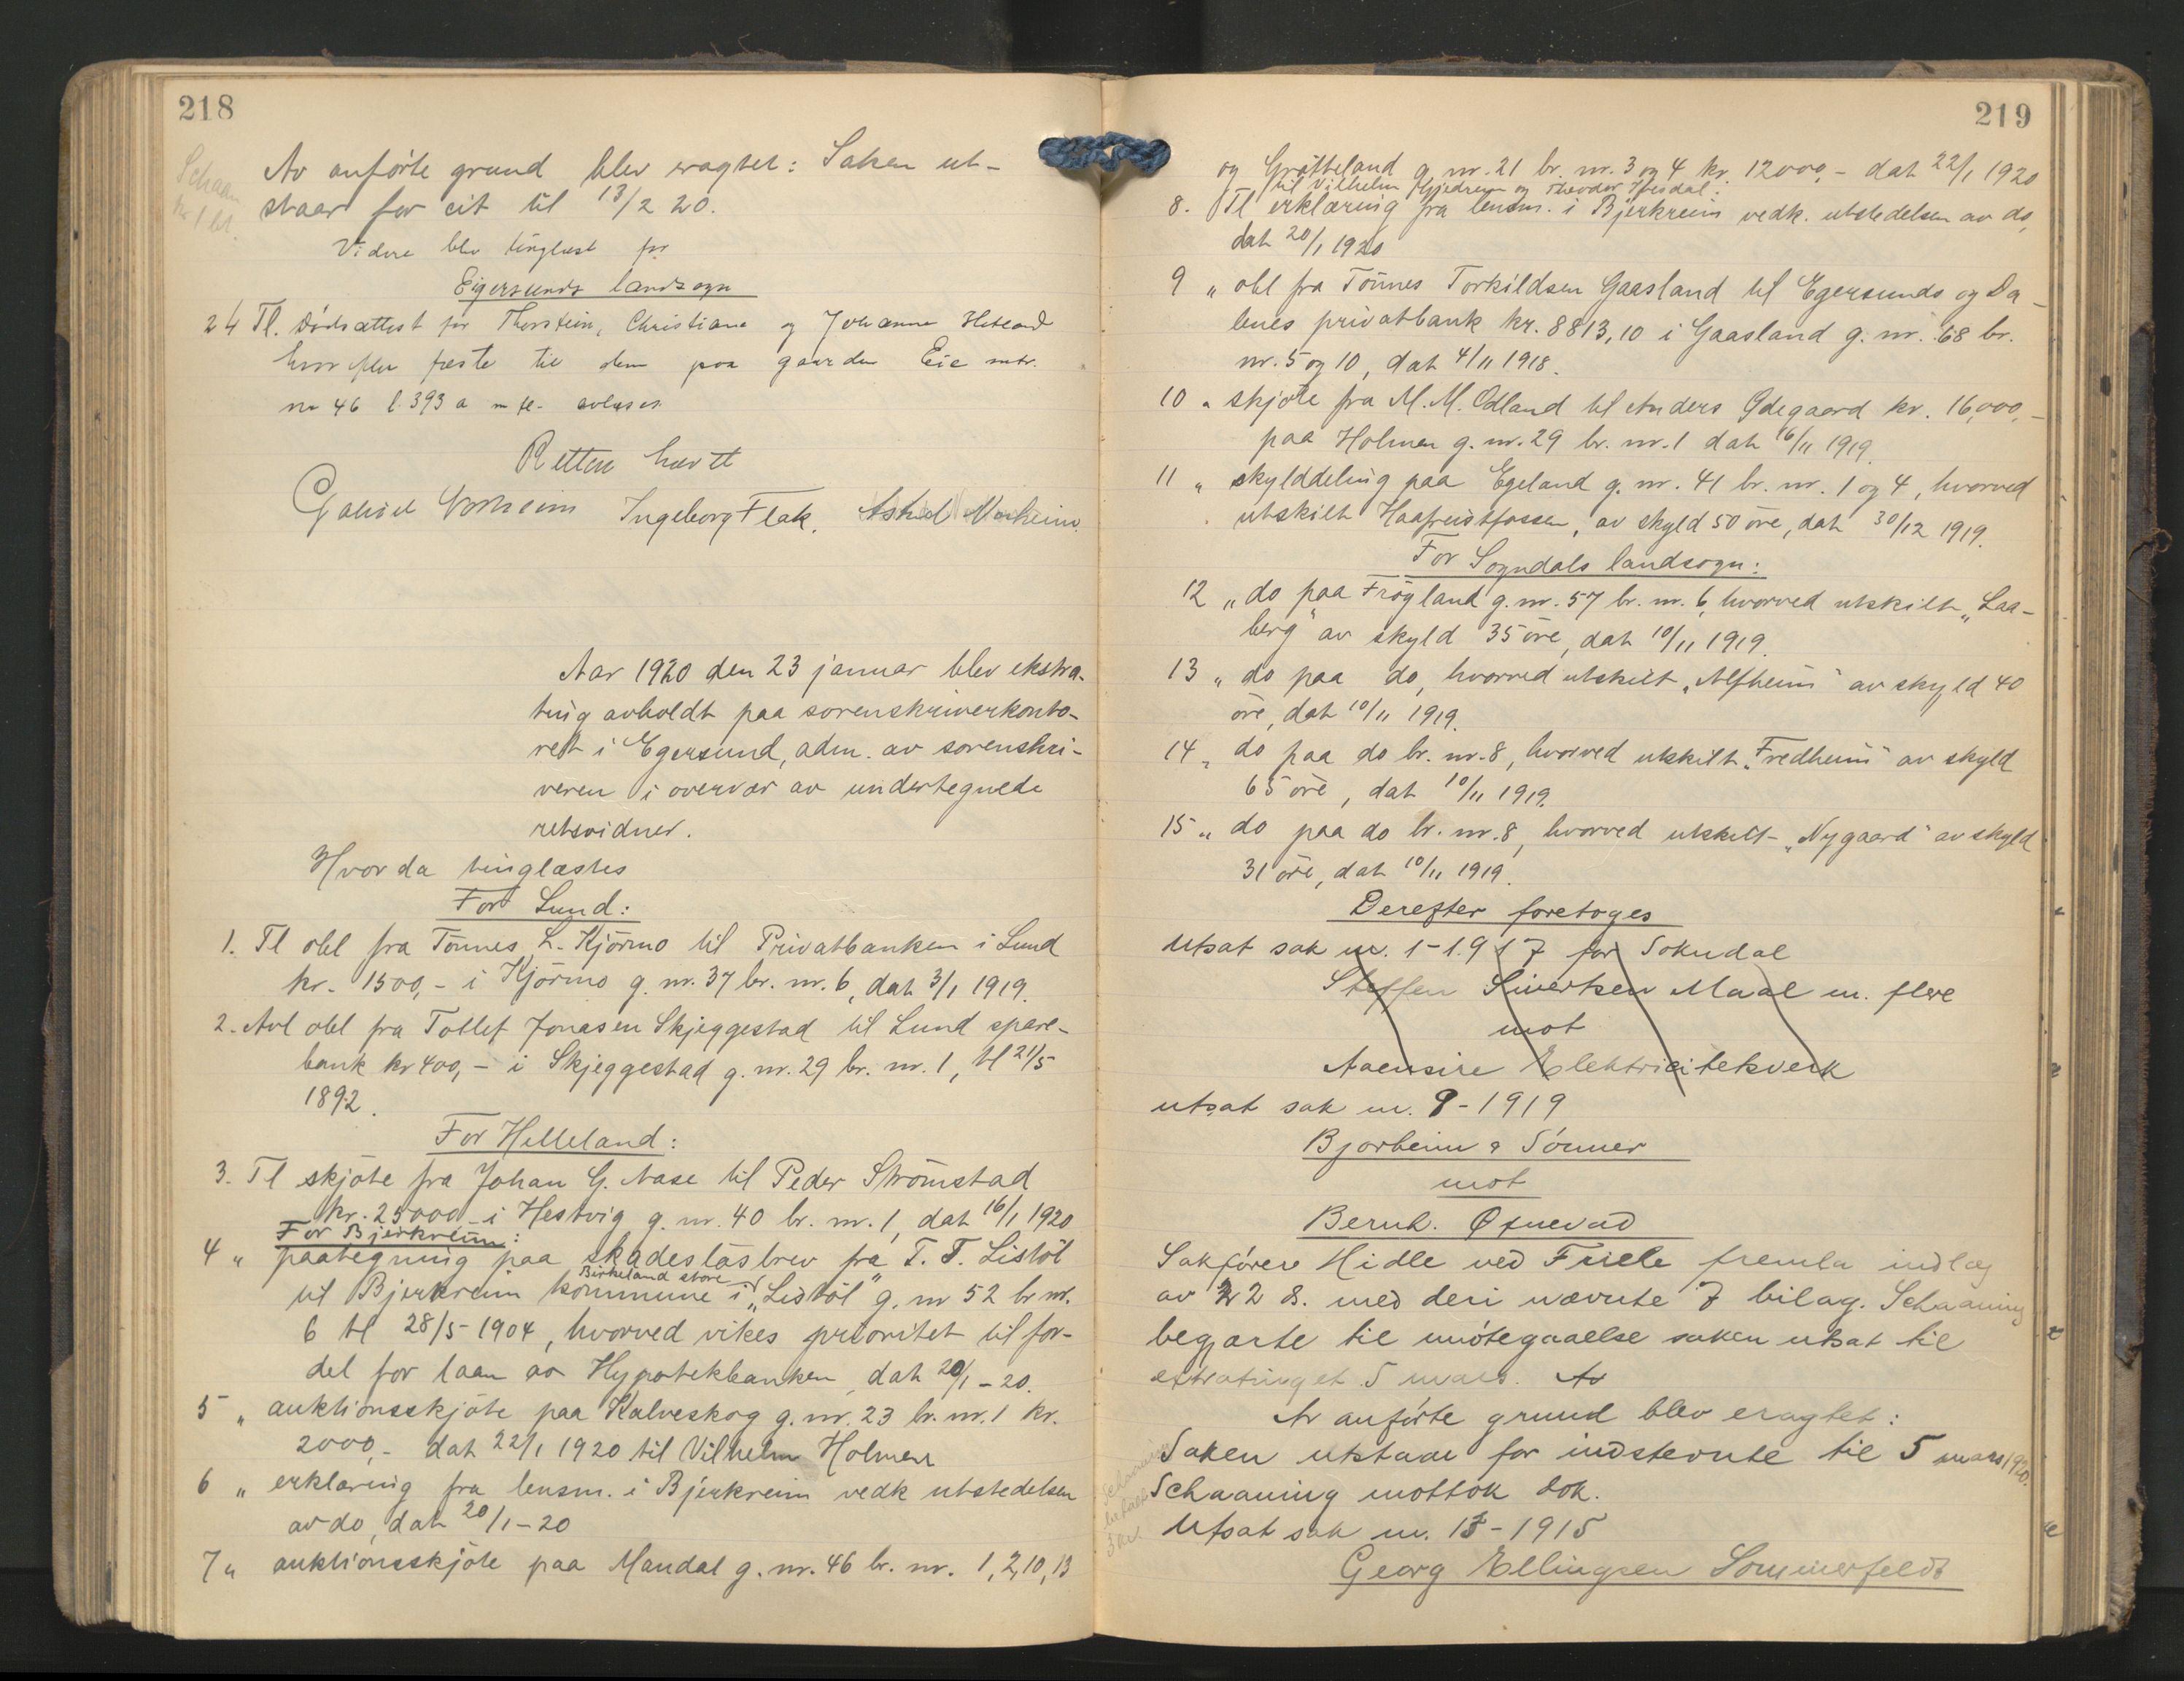 218
Av anførte grund blev eragtet: Saken ut-
staar for cit til 13/2 20.
Videre blev tinglæst for
Eigersunds landsogn
24 Tl. dødsattest for Thorstein, Christiane og Johanne Hetland
hvorefter feste til dem paa gaarden Eie mtr.
no 46 l. 393 a m fl. avlæses.
Retten hævet
Ingeborg Flak.
Aar 1920 den 23 januar blev ekstra-
ting avholdt paa sorenskriverkonto-
ret i Egersund, adm. av sorenskri-
veren i overvær av undertegnede
retsvidner.
Hvor da tinglæstes
For Lund:
1. Tl obl fra Tønnes L. Kjørmo til Privatbanken i Lund
kr. 1500,- i Kjørmo g. nr. 37 br. nr. 6, dat 3/1 1919.
2. Avl obl fra Tollef Jonasen Skjeggestad til Lund spare-
bank kr 400,- i Skjeggestad g. nr. 29 br. nr. 1, tl 21/5
1892.
For Helleland:
3. Tl skjøte fra Johan G. Aase til Peder Strømstad
kr. 25000,- i Hestvig g. nr. 40 br. nr. 1, dat 16/1 1920
For Bjerkreim:
4 " paategning paa skadesløsbrev fra T. T. Listøl
Birkeland store
til Bjerkreim kommune i "Listøl" g. nr 52 br nr.
6 tl 28/5-1904, hvorved vikes prioritet til for-
del for laan av Hypotekbanken, dat 20/1-20.
5 " auktionsskjøte paa Kalveskog g. nr. 23 br. nr. 1 kr.
2000,- dat 22/1 1920 til Vilhelm Holmen
6 " erklæring fra lensm. i Bjerkreim vedk utstedelsen
av do, dat 20/1-20
7 " auktionsskjøte paa Maudal g. nr. 46 br. nr. 1, 2, 10, 13
219
og Grøtteland g. nr. 21 br. nr. 3 og 4 kr. 12000,- dat 22/1 1920
til Vilhelm Gjedrem og Theodor
8. Tl erklæring fra lensm. i Bjerkreim vedk. utstedelsen av do,
dat 20/1 1920
9 " obl fra Tönnes Torkildsen Gaasland til Egersunds og Da-
lenes privatbank kr. 8813,10 i Gaasland g. nr. 68 br.
nr. 5 og 10, dat 4/11 1918.
10 " skjøte fra M. M. Odland til Anders Ødegaard kr. 16,000,-
paa Holmen g. nr. 29 br. nr. 1 dat 16/11 1919.
11 " skylddeling paa Egeland g. nr. 41 br. nr. 1 og 4, hvorved
utskilt Haafreistfossen, av skyld 50 øre, dat 30/12 1919.
For Sogndals landsogn:
12 " do paa Frøgland g. nr. 57 br. nr. 6, hvorved utskilt "Laa-
berg" av skyld 35 øre, dat 10/11 1919.
13 " do paa do, hvorved utskilt "Alfheim" av skyld 40
øre, dat 10/11 1919.
14 " do paa do br. nr. 8, hvorved utskilt "Fredheim" av skyld
65 øre, dat 10/11 1919.
15 " do paa do br. nr. 8, hvorved utskilt "Nygaard" av skyld
31 øre, dat 10/11 1919.
Derefter foretoges
Utsat sak nr. 1-1917 for Sokndal
Steffen Sivertsen Maal m. flere
mot
Aaensire Elektricitetsverk
utsat sak nr. 9-1919
Bjorheim & Sønner
mot
Bernh. Øfnevad
Sakfører Hidle ved Friele fremla indlæg
av 22 ds. med deri nævnte 7 bilag. Schaaning
begjærte til imøtegaaelse saken utsat til
extratinget 5 mars. Av
Av anførte grund blev eragtet:
Saken utstaar for indstevnte til 5 mars 1920.
Schaaning mottok dok.
Utsat sak nr. 13-1915
Georg Ellingsen Sommerfeldt